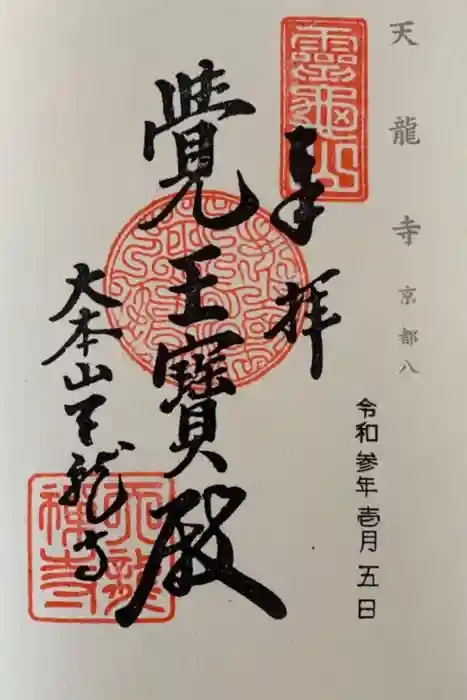 天龍寺 京都八
靈龜山
奉拝
令和参年壱月五日
覺王寶殿
大本山天龍寺
天龍禅寺